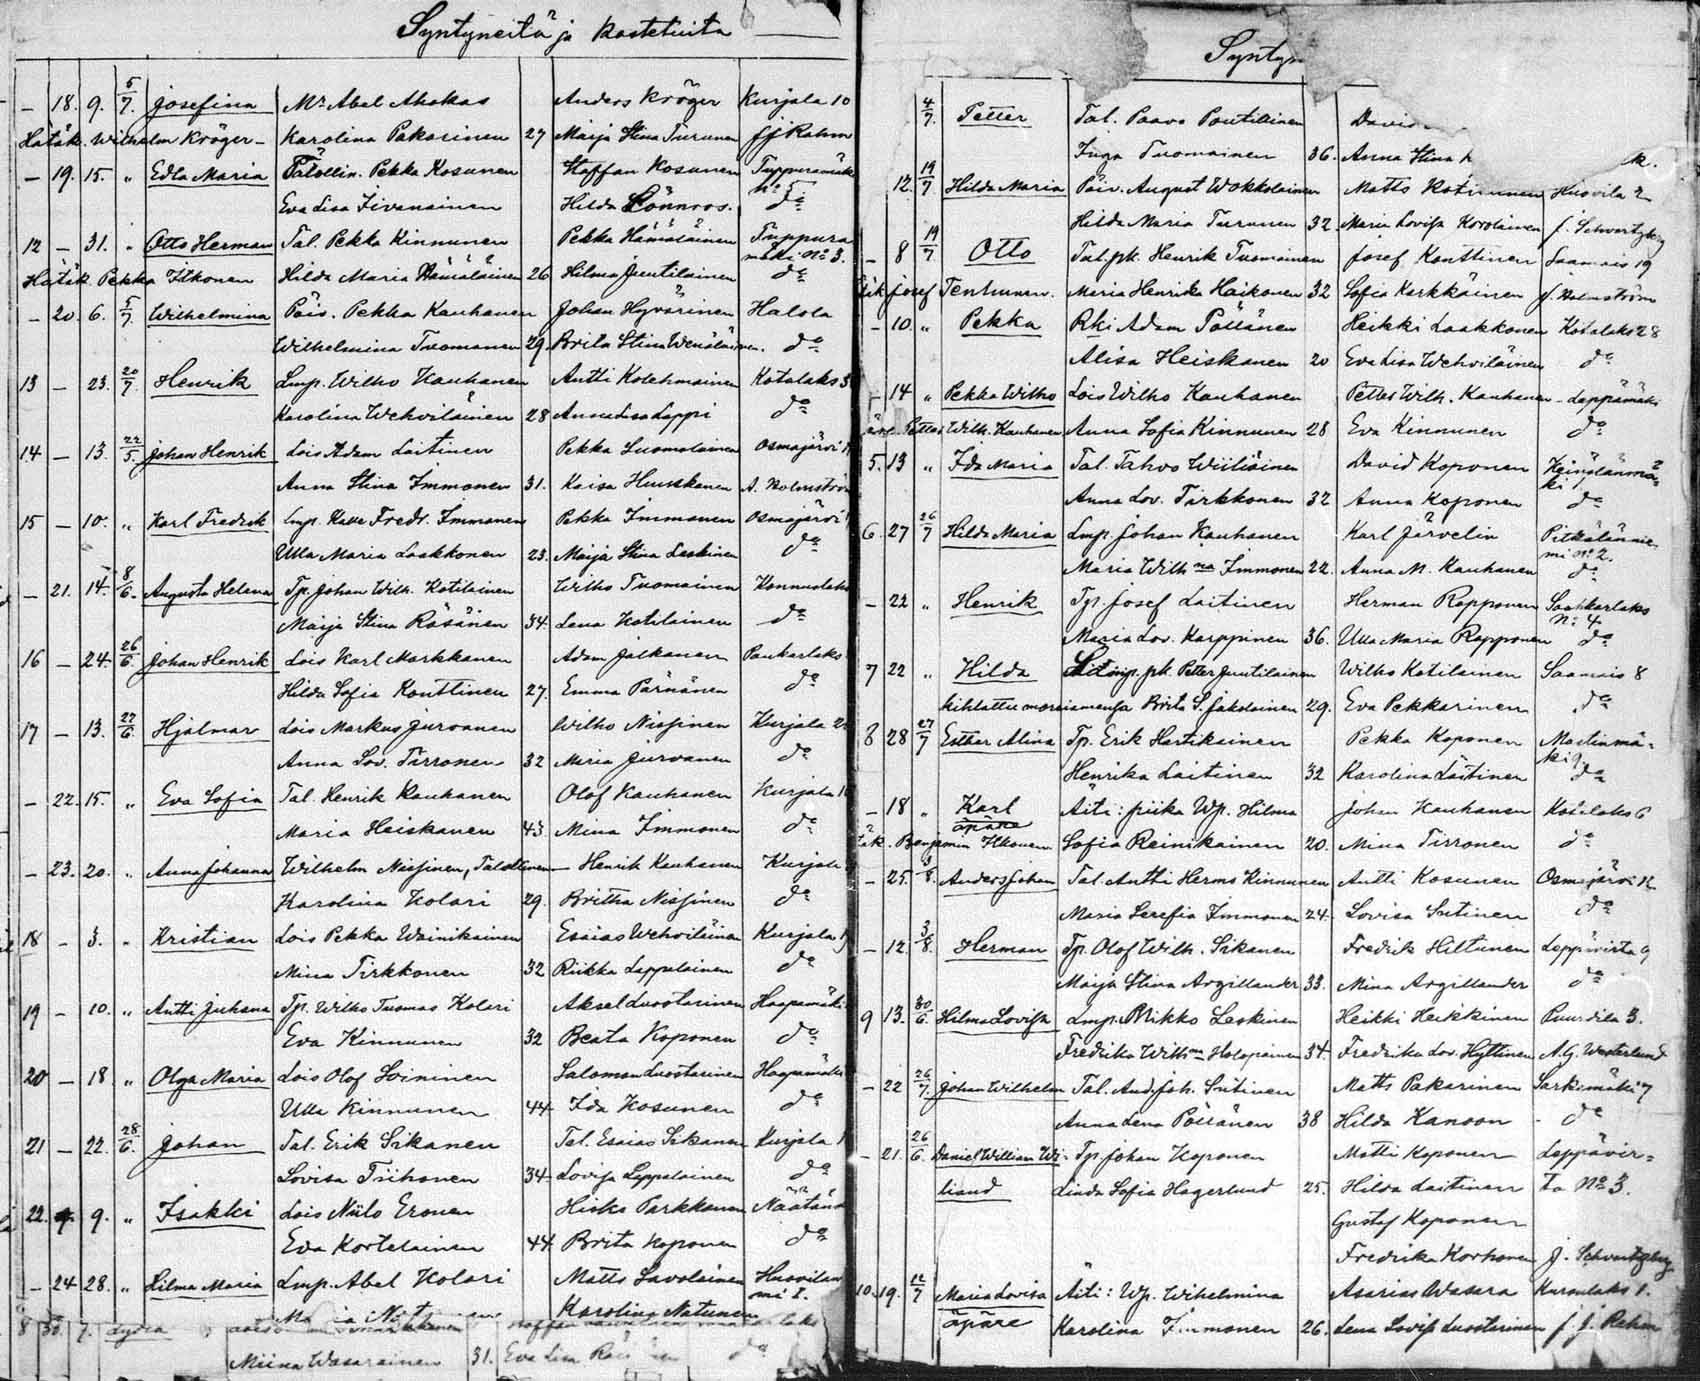 Syntyneitä ja Kastetuita
– 18. 9. 5/7. Josefina Mr Abel Ahokas Anders Kröger Kurjala 10
Hätäk. Wilhelm Kröger – Karolina Pakarinen 27 Maija Stina Turunen J J Rahm
– 19. 15. " Edla Maria Talollin. Pekka Kosunen Staffan Kosunen Tuppuramäki
Eva Lisa Iivanainen Hilda Lönnroos. No 5. do
12 – 31. " Otto Herman Tal. Pekka Kinnunen Pekka Hämäläinen Tuppura
mäki No 3.
Hätäk. Pekka Itkonen Hilda Maria Hämäläinen 26 Hilma Juutilainen do
– 20. 6. 5/7. Wilhelmina Päiv. Pekka Kauhanen Johan Hyvärinen Halola
Wilhelmina Tuomanen 29. Brita Stina Wenäläinen. do
13 – 23. 20/7. Henrik Lmp. Wilho Kauhanen Antti Kolehmainen Kotalaks 3
Karolina Wehviläinen 28 Anna Lisa Lappi do
14 – 13. 22/5. Johan Henrik Lois Adam Laitinen Pekka Suomalainen Osmajärvi
Anna Stina Immonen 31. Kaisa Huuskanen A. Holmström
15 – 10. " Karl Fredrik Lmp. Kalle Fredr. Immonen Pekka Immonen Osmajärvi
Ulla Maria Laakkonen 23. Maija Stina Leskinen do
– 21. 14. 8/6. Augusta Helena Tp. Johan Wilh. Kotilainen Wilho Tuomainen Konnuslaks
Maija Stina Räsänen 34. Lena Kotilainen do
16 – 24. 26/6. Johan Henrik Lois Karl Markkanen Adam Jalkanen Paukarlaks
Hilda Sofia Konttinen 27. Emma Pärnänen do
17 – 13. 27/6. Hjalmar Lois Markus Jurvanen Wilho Nissinen Kurjala 2
Anna Lov. Tirronen 32 Miria Jurvanen do
– 22. 15. " Eva Sofia Tal. Henrik Kauhanen Olof Kauhanen Kurjala
Maria Heiskanen 43. Mina Immonen do
– 23. 20. " Anna Johanna Wilhelm Nissinen, Talollinen – Henrik Kauhanen Kurjala
Karolina Kolari 29. Britha Nissinen do
18 – 3. " Kristian Lois Pekka Wainikainen Esaias Wehviläinen Kurjala
Mina Tirkkonen 32 Riikka Lappalainen do
19 – 10. " Antti Juhana Tp. Wilho Tuomas Kolari Aksel Luostarinen Haapamäki
Eva Kinnunen 32 Beata Koponen do
20 – 18. " Olga Maria Lois Olof Soininen Salomon Luostarinen Haapamäki
Ulla Kinnunen 44. Ida Kosunen do
21 – 22. 28/6. Johan Tal. Erik Sikanen Tal. Esaias Sikanen Kurjala
Lovisa Tiihonen 34. Lovisa Lappalainen do
22. 9. " Isakki Lois Niilo Eronen Hisko Parkkonen Näätänm
Eva Kortelainen 44. Brita Koponen do
– 24 28. " Hilma Maria Lmp. Abel Kolari Matts Savolainen Husvilan
Karolina Natunen mäi 1.
8 30. 7. Lydia
Miina Wasarainen 31. Eva Lisa do
Syntyn
4/7. Petter Tal. Paavo Poutiainen David
Inga Tuomainen 36. Anna Stina
12. 19/7 Hilda Maria Päiv. August Wokkolainen Matts Kotrunen Husvila 2
Hilda Maria Turunen 32 Maria Lovisa Korolainen J. Schvartzberg
– 8 19/7 Otto Tal. pk. Henrik Tuomainen Josef Konttinen Saamais 19
Josef Tenhunen. Maria Henrika Haikonen 32 Sofia Karkkäinen J. Holmström
– 10. " Pekka Rki Adam Pöllänen Heikki Laakkonen Kotalaks 28
Alisa Heiskanen 20 Eva Lisa Wehviläinen do
– 14 " Pekka Wilho Lois Wilho Kauhanen Petter Wilh. Kauhanen – Leppämäki
Petter Wilh. Kauhanen Anna Sofia Kinnunen 28 Eva Kinnunen do
5. 13 " Ida Maria Tal. Tahvo Wiiliäinen David Koponen Keinälänmä=
ki
Anna Lov. Tirkkonen 32 Anna Koponen do
6. 27 26/7 Hilda Maria Lmp. Johan Kauhanen Karl Järvelin Pitkälännie
mi No 2.
Maria Wilhna Immonen 22. Anna M. Kauhanen do
– 22 " Henrik Tp. Josef Laitinen Herman Rapponen Saahkarlaks
No 4
Maria Lov. Karppinen 36. Ulla Maria Rapponen do
7 22 " Hilda Lmp. pk. Petter Juutilainen Wilho Kotilainen Saamais 8
kihlattu morsiamensa Brita S. Jakolainen 29. Eva Pekkarinen do
8 28 27/7 Esther Alina Tp. Erik Hartikainen Pekka Koponen Martinmä=
ki 9.
Henrika Laitinen 32 Karolina Laitinen do
– 18 " Karl Äiti: piika Wp. Hilma Johan Kauhanen Kotalaks 6
äpäre
Benjamin Itkonen Sofia Reinikainen 20. Mina Tirronen do
– 25. 3/8. Anders Johan Tal. Antti Herms Kinnunen Antti Kosunen Osmajärvi 12
Maria Serefia Immonen 24. Lovisa Sutinen do
– 12 3/8. Herman Tp. Olof Wilh. Sikanen Fredrik Hiltunen Leppävirta 9
Maija Stina Argillander 33. Mina Argillander do
9 13. 30/6. Hilma Lovisa Lmp. Mikko Leskinen Heikki Heikkinen Puurdila 3.
Fredrika Wilhna Holopainen 34. Fredrika Lov. Hyttinen A. G. Westerlund
– 22 26/7. Johan Wilhelm Tal. And. Joh. Sutinen Matts Pakarinen Sarkamäki 7
Anna Lena Pöllänen 38 Hilda Kanoon do
– 21. 26/6. Daniel William Wi= Tp. Johan Koponen Matti Koponen Leppävir=
liand Linda Sofia Hagerlund 25. Hilda Laitinen ta No 3.
Gustaf Koponen
Fredrika Korhonen J. Schvartzberg
10. 19. 12/7 Maria Lovisa Äiti: Wp. Wihelmina Asarias Wasara Kurolaks 1.
äpäre Karolina Immonen 26. Lena Lovisa Luostarinen J. J. Rahm